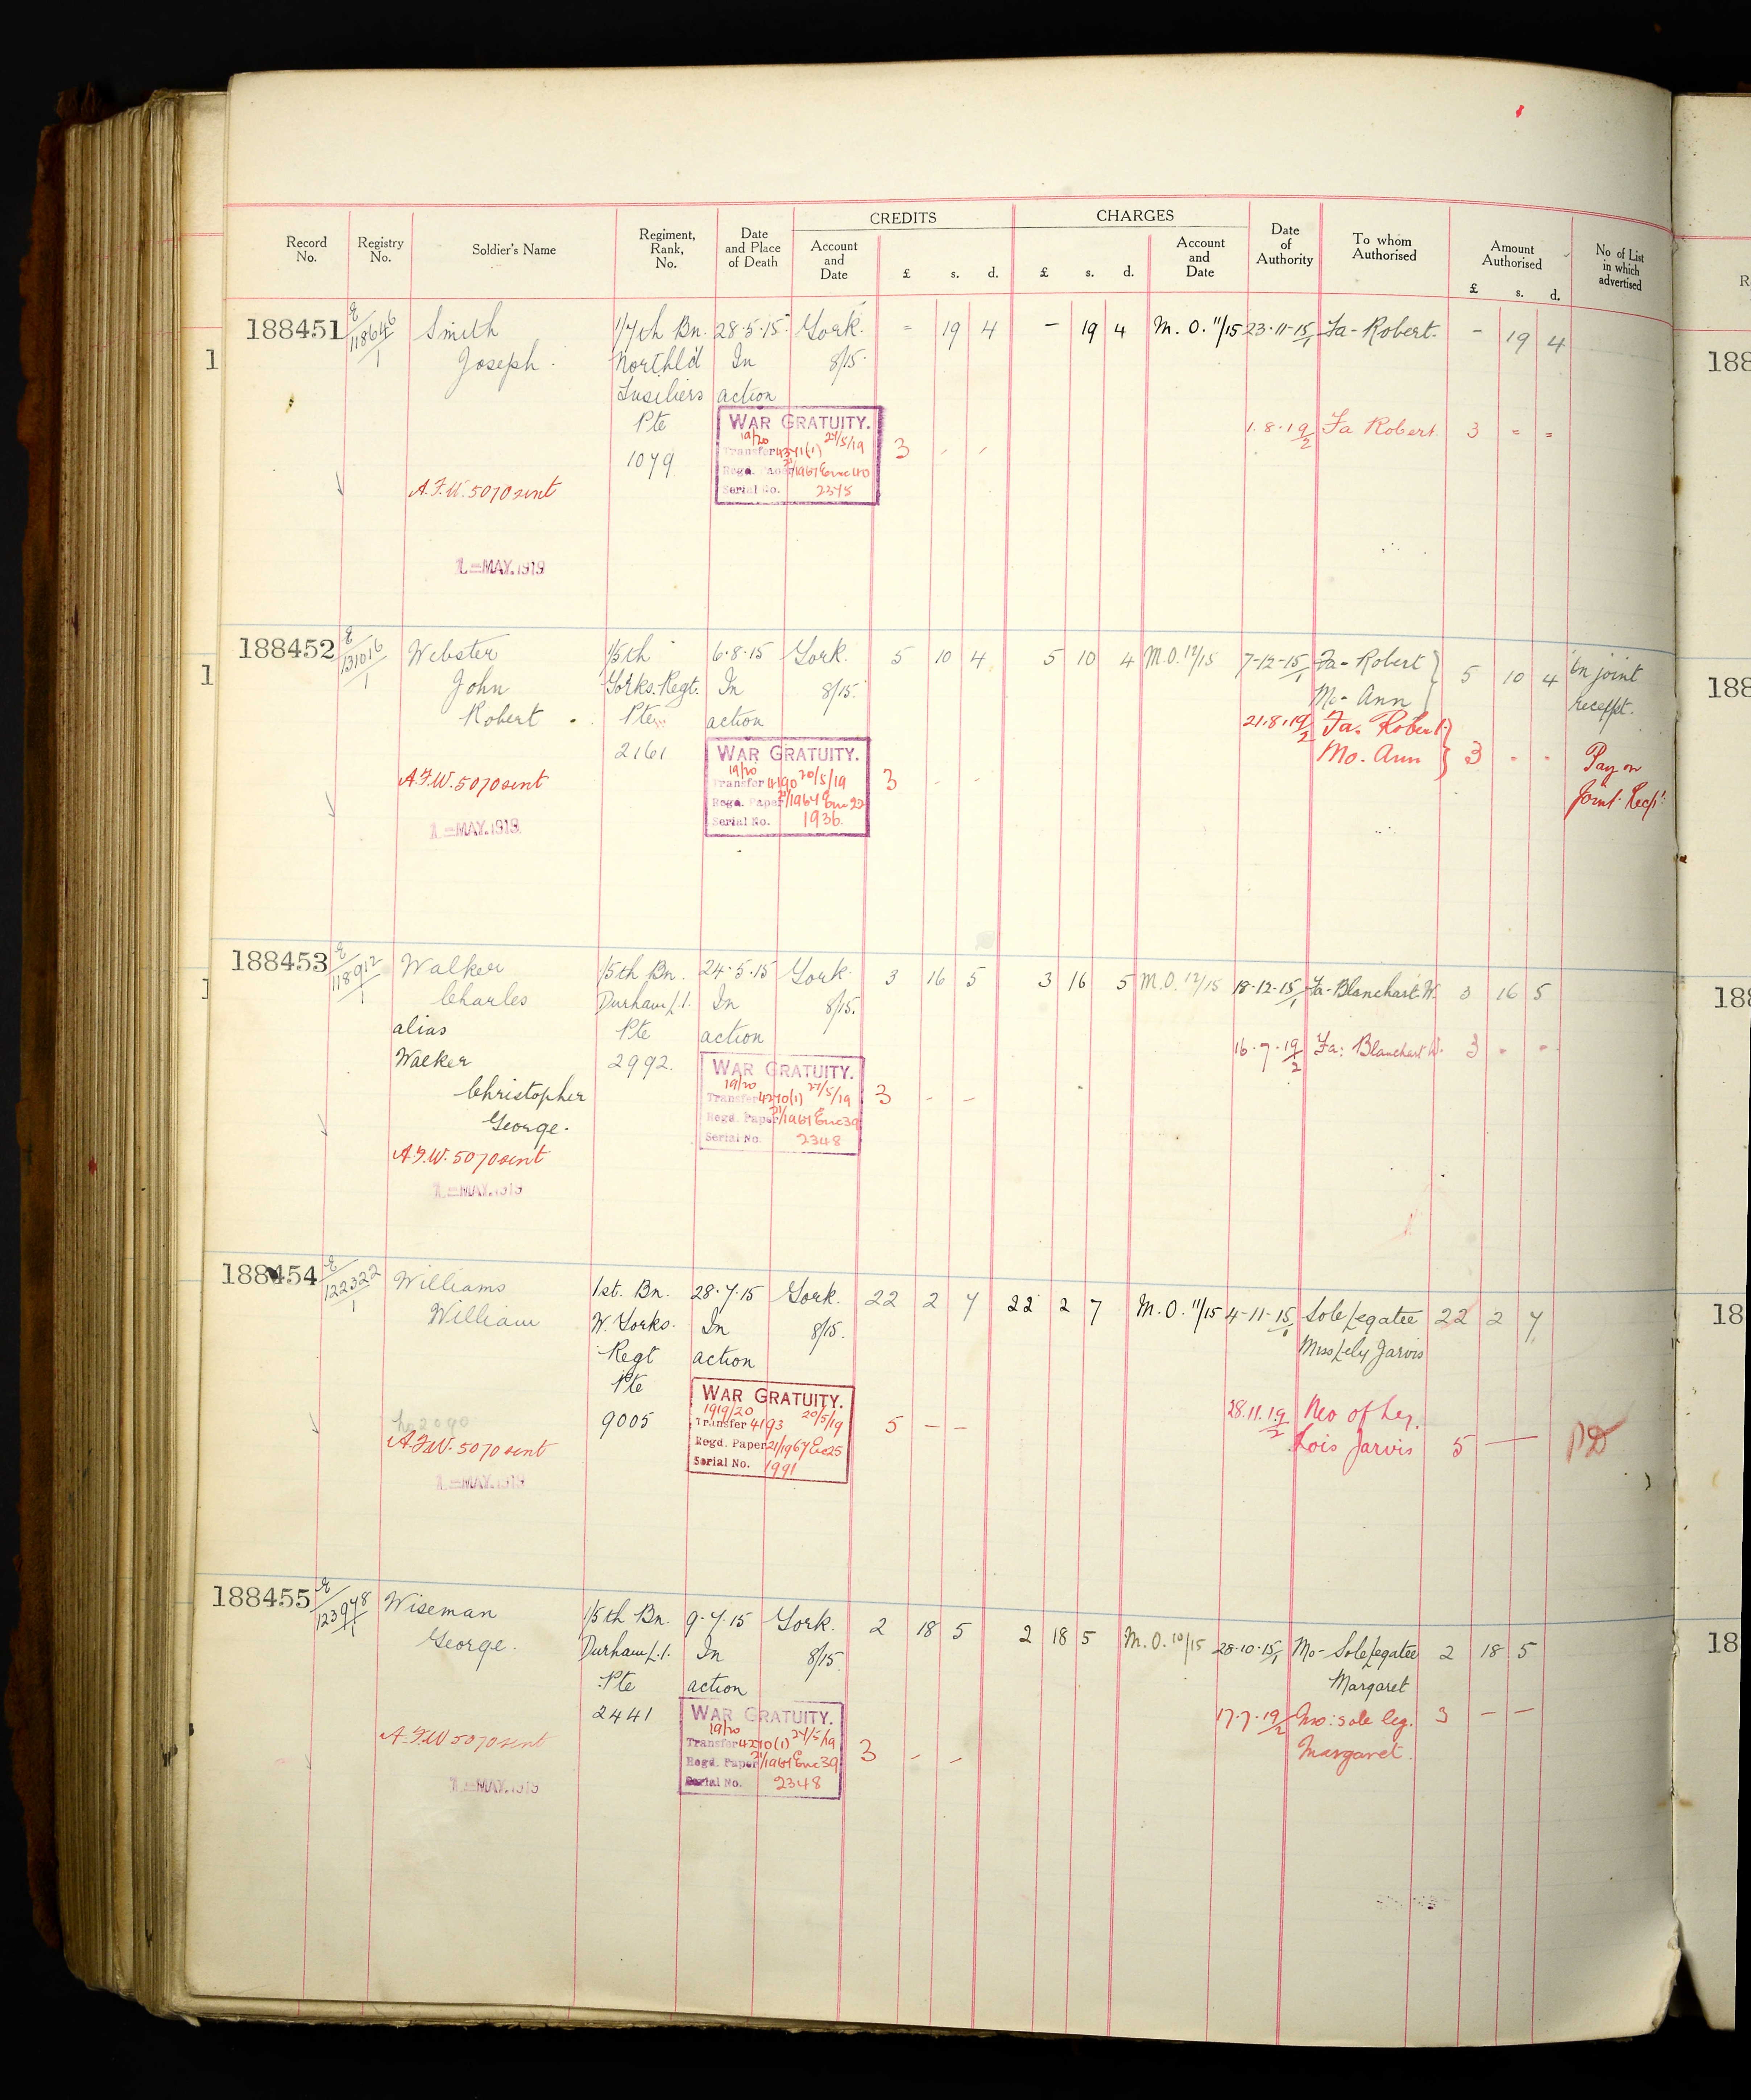 CREDITS CHARGES
Record No. Registry No. Soldier's Name Regiment, Rank, No. Date and Place of Death Account and Date £ s. d. £ s. d. Account and Date Date of Authority To whom Authorised Amount Authorised £ s. d. No of List in which advertised
188451 E/118646/1 Smith 1/7th Bn. 28.5.15 York. = 19 4 - 19 4 M.O. 11/15 23-11-15/1 Fa - Robert. - 19 4
Joseph. Northld In 8/15.
Fusiliers action
Pte WAR GRATUITY. 1.8.19/2 Fa Robert 3 = =
19/20 27/5/19
1079 Transfer 3 - -
Regd. Paper
A.F.W. 5070 sent Serial No. 2375
1 - MAY. 1919
188452 E/131016/1 Webster 1/5th 6.8.15 York. 5 10 4 5 10 4 M.O. 12/15 7-12-15/1 Fa - Robert } 5 10 4 on joint
John Yorks. Regt. In 8/15. Mo - Ann receipt.
Robert Pte action 21.8.19/2 Fa. Robert }
2161 WAR GRATUITY. Mo. Ann 3 - - Pay on
19/20 20/5/19 Joint Recpt
A.F.W. 5070 sent Transfer 4190 3 - -
Regd. Paper 21/1967 Enc 22
1 - MAY. 1919 Serial No. 1936
188453 E/118912/1 Walker 1/5th Bn. 24.5.15 York. 3 16 5 3 16 5 M.O. 12/15 18-12-15/1 Fa - Blanchart W. 3 16 5
Charles Durham L.I. In 8/15.
alias Pte action 16.7.19/2 Fa: Blanchart W. 3 - -
Walker 2992. WAR GRATUITY.
19/20 27/5/19
Christopher Transfer 4270(1) 3 - -
George. Regd. Paper 21/1967 Enc 39
A.F.W. 5070 sent Serial No. 2348
1 - MAY. 1919
188454 E/122322/1 Williams 1st. Bn. 28.7.15 York. 22 2 7 22 2 7 M.O. 11/15 4-11-15/1 Sole Legatee 22 2 7
William W. Yorks. In 8/15. Miss Lely Jarvis
Regt action
Pte WAR GRATUITY. 28.11.19/2 Neo of Leg.
1919/20 20/5/19
9005 Transfer 4193 5 - - Lois Jarvis 5 -
A.F.W. 5070 sent Regd. Paper 21/1967 Enc 25
1 - MAY. 1919 Serial No. 1991
188455 E/123978/1 Wiseman 1/5th Bn. 9.7.15 York. 2 18 5 2 18 5 M.O. 10/15 28-10-15/1 Mo - Sole Legatee 2 18 5
George. Durham L.I. In 8/15. Margaret
Pte action
2441 WAR GRATUITY. 17.7.19/2 Mo: sole leg. 3 - -
19/20 27/5/19 Margaret.
A.F.W. 5070 sent Transfer 4270(1) 3 - -
Regd. Paper 21/1967 Enc 39
1 - MAY. 1919 Serial No. 2348